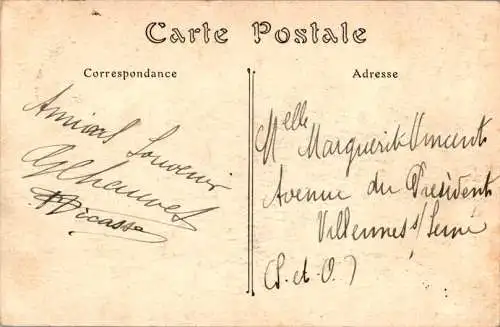 Carte Postale
Correspondance
Adresse
Amical Souvenir
Picasso
Melle Marguerite Vincent
Avenue du Président
Villennes s/ Seine
(S.-et-O.)